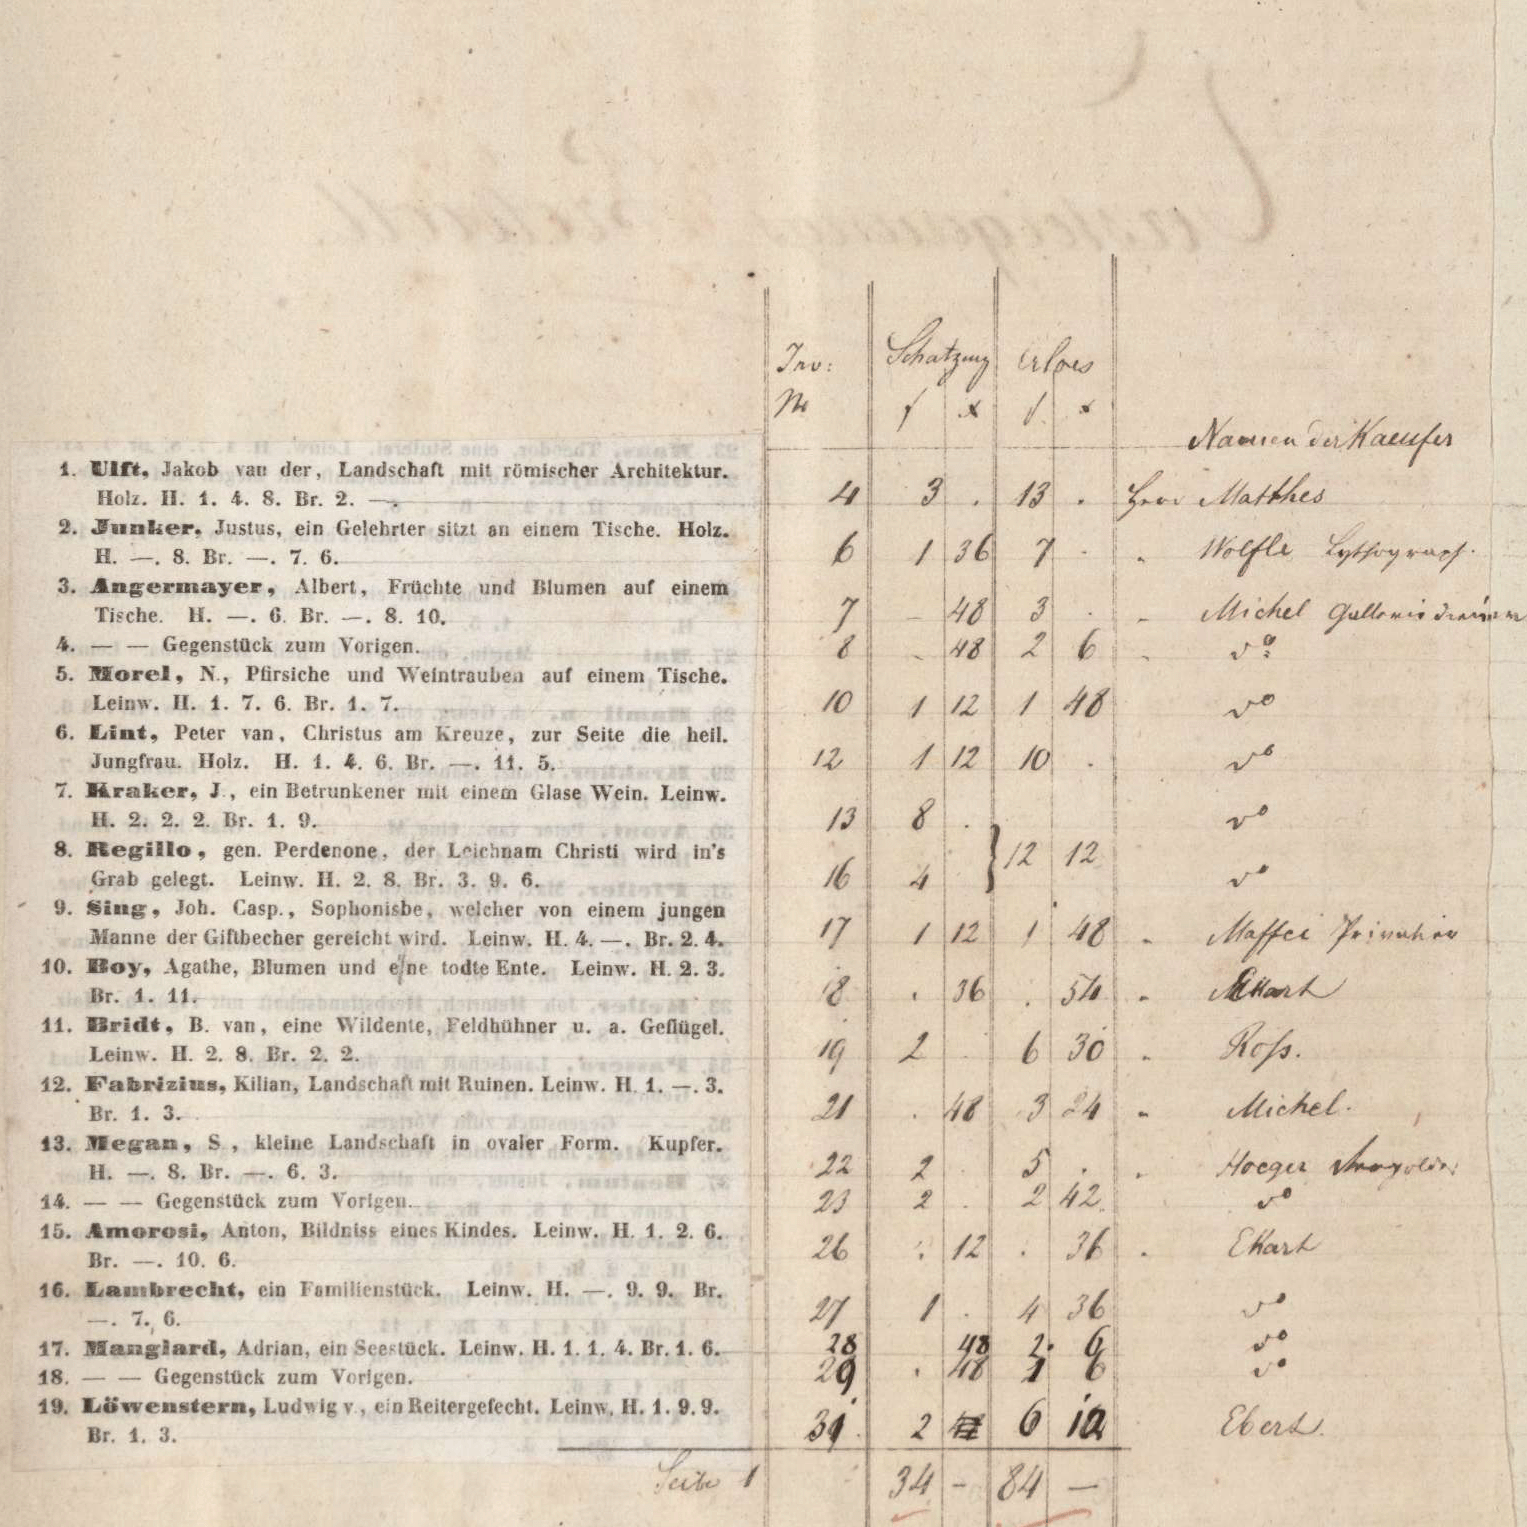 Inv: Schatzung Erloes
Nr f x f. x
Namen der Kaeufer
1. Ulft, Jakob van der, Landschaft mit römischer Architektur.
Holz. H. 1. 4. 8. Br. 2. —. 4 3 . 13 . Herr Matthes
2. Junker, Justus, ein Gelehrter sitzt an einem Tische. Holz.
H. —. 8. Br. —. 7. 6. 6 1 36 7 . " Wolfle Lythograph.
3. Angermayer, Albert, Früchte und Blumen auf einem
Tische. H. —. 6. Br. —. 8. 10. 7 — 48 3 . " Michel
4. — — Gegenstück zum Vorigen. 8 . 48 2 6 " do
5. Morel, N., Pfirsiche und Weintrauben auf einem Tische.
Leinw. H. 1. 7. 6. Br. 1. 7. 10 1 12 1 48 do
6. Lint, Peter van, Christus am Kreuze, zur Seite die heil.
Jungfrau. Holz. H. 1. 4. 6. Br. —. 11. 5. 12 1 12 10 . do
7. Kraker, J., ein Betrunkener mit einem Glase Wein. Leinw.
H. 2. 2. 2. Br. 1. 9. 13 8 . do
8. Regillo, gen. Perdenone, der Leichnam Christi wird in's } 12 12
Grab gelegt. Leinw. H. 2. 8. Br. 3. 9. 6. 16 4 do
9. Sing, Joh. Casp., Sophonisbe, welcher von einem jungen
Manne der Giftbecher gereicht wird. Leinw. H. 4. —. Br. 2. 4. 17 1 12 1 48 " Maffei Privatier
10. Boy, Agathe, Blumen und eine todte Ente. Leinw. H. 2. 3.
Br. 1. 11. 18 . 36 . 54 " Ekart
11. Bridt, B. van, eine Wildente, Feldhühner u. a. Geflügel.
Leinw. H. 2. 8. Br. 2. 2. 19 2 . 6 30 " Roß.
12. Fabrizius, Kilian, Landschaft mit Ruinen. Leinw. H. 1. —. 3.
Br. 1. 3. 21 . 48 3 24 " Michel.
13. Megan, S., kleine Landschaft in ovaler Form. Kupfer.
H. —. 8. Br. —. 6. 3. 22 2 . 5 . " Hoeger
14. — — Gegenstück zum Vorigen. 23 2 . 2 42. do
15. Amorosi, Anton, Bildniss eines Kindes. Leinw. H. 1. 2. 6.
Br. —. 10. 6. 26 . 12 . 36 " Ekart
16. Lambrecht, ein Familienstück. Leinw. H. —. 9. 9. Br.
—. 7. 6. 27 1 . 4 36 do
17. Manglard, Adrian, ein Seestück. Leinw. H. 1. 1. 4. Br. 1. 6. 28 48 2. 6 do
18. — — Gegenstück zum Vorigen. 29 . 48 1 6 do
19. Löwenstern, Ludwig v., ein Reitergefecht. Leinw. H. 1. 9. 9.
Br. 1. 3. 31 2 6 12 Ebert.
Seite 1 34 — 84 —